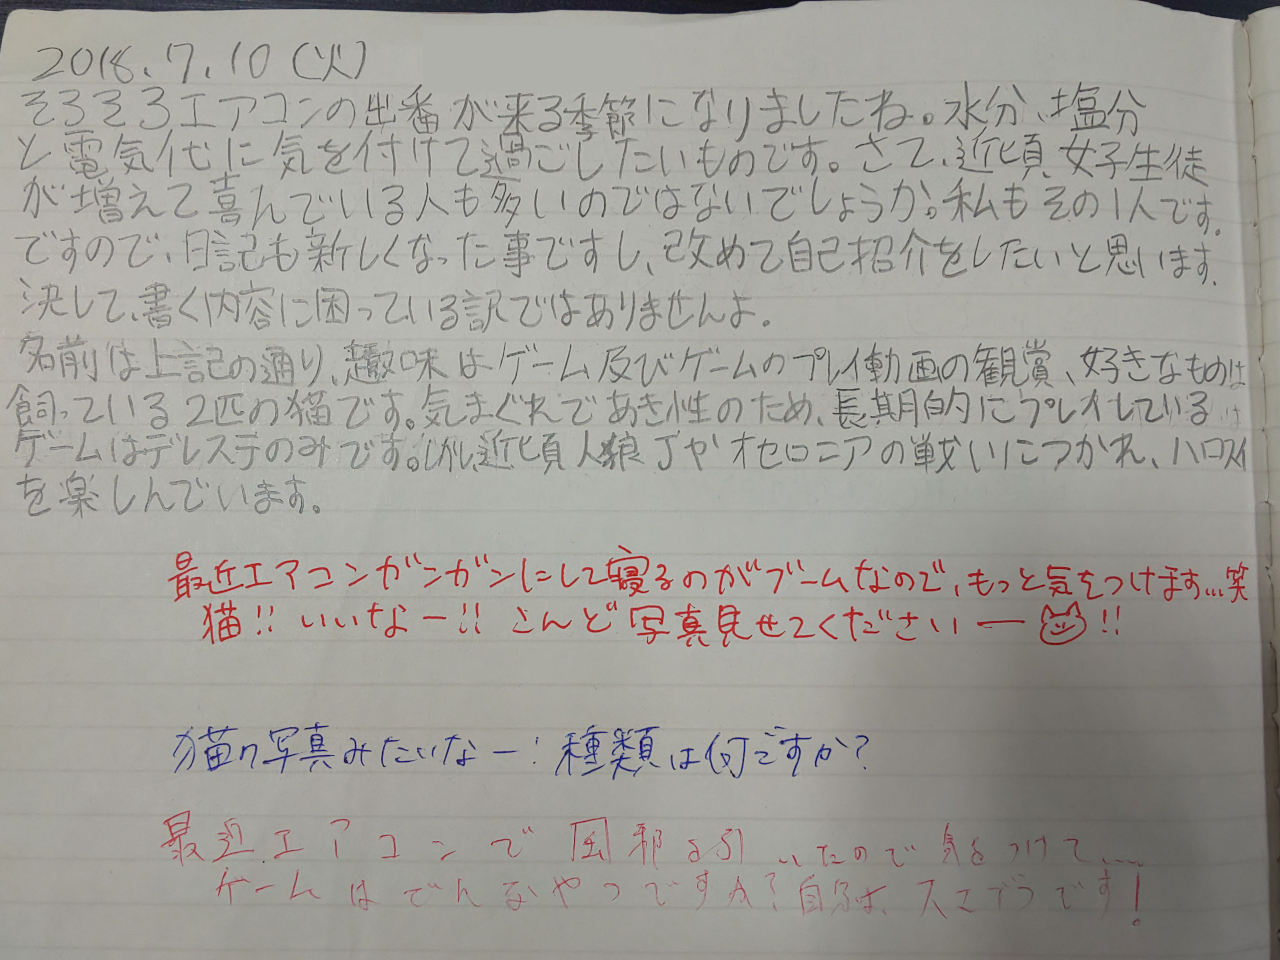 2018.7.10(火)
そろそろエアコンの出番が来る季節になりましたね。水分、塩分
と電気代に気を付けて過ごしたいものです。さて、近頃女子生徒
が増えて喜んでいる人も多いのではないでしょうか。私もその1人です。
ですので、日記も新しくなった事ですし、改めて自己紹介をしたいと思います。
決して、書く内容に困っている訳ではありませんよ。
名前は上記の通り、趣味はゲーム及びゲームのプレイ動画の観賞、好きなものは
飼っている2匹の猫です。気まぐれであき性のため、長期的にプレイしている
ゲームはデレステのみです。しかし、近頃人狼Jやオセロニアの戦いにつかれ、ハロスイ
を楽しんでいます。
最近エアコンガンガンにして寝るのがブームなので、もっと気をつけます...笑
猫!!いいなー!!こんど写真見せてくださいー!!
猫の写真みたいなー!種類は何ですか?
最近エアコンで風邪を引いたので気をつけて....
ゲームはどんなやつですか?自分は、スこプラです!